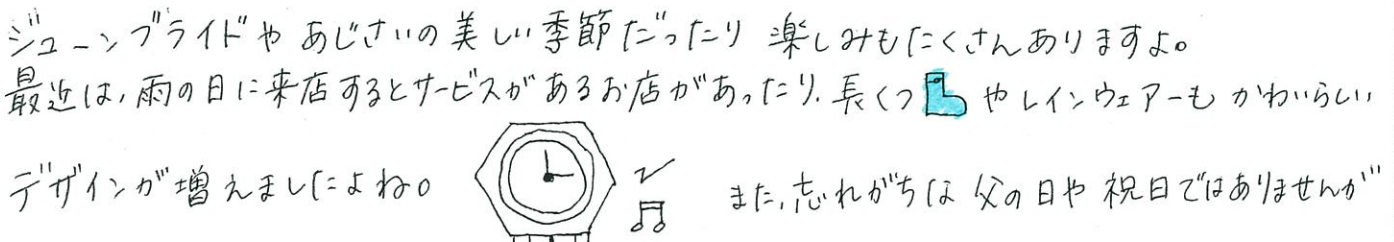 ジューンブライドや あじさいの美しい季節だったり 楽しみもたくさんありますよ。
最近は、雨の日に来店するとサービスがあるお店があったり、長くつやレインウェアーもかわいらしい
デザインが増えましたよね。
また、忘れがちな父の日や祝日ではありませんが